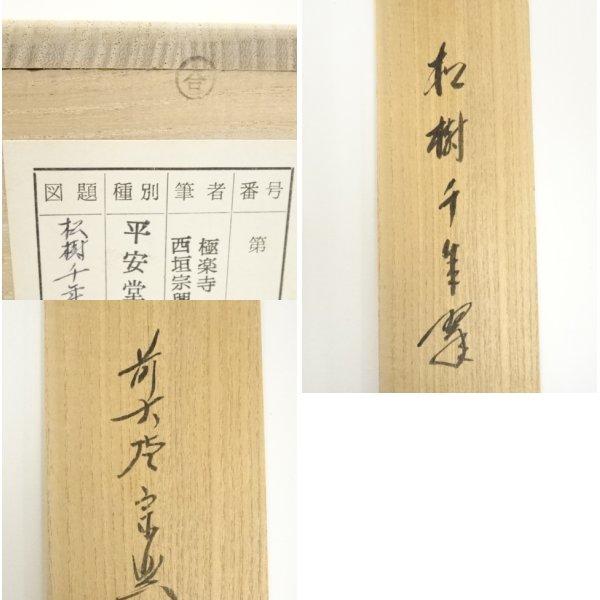 合
図題 種別 筆者 番号
第
極楽寺
西垣宗興
平安堂
松樹千年
松樹千年翠
前大徳宗興